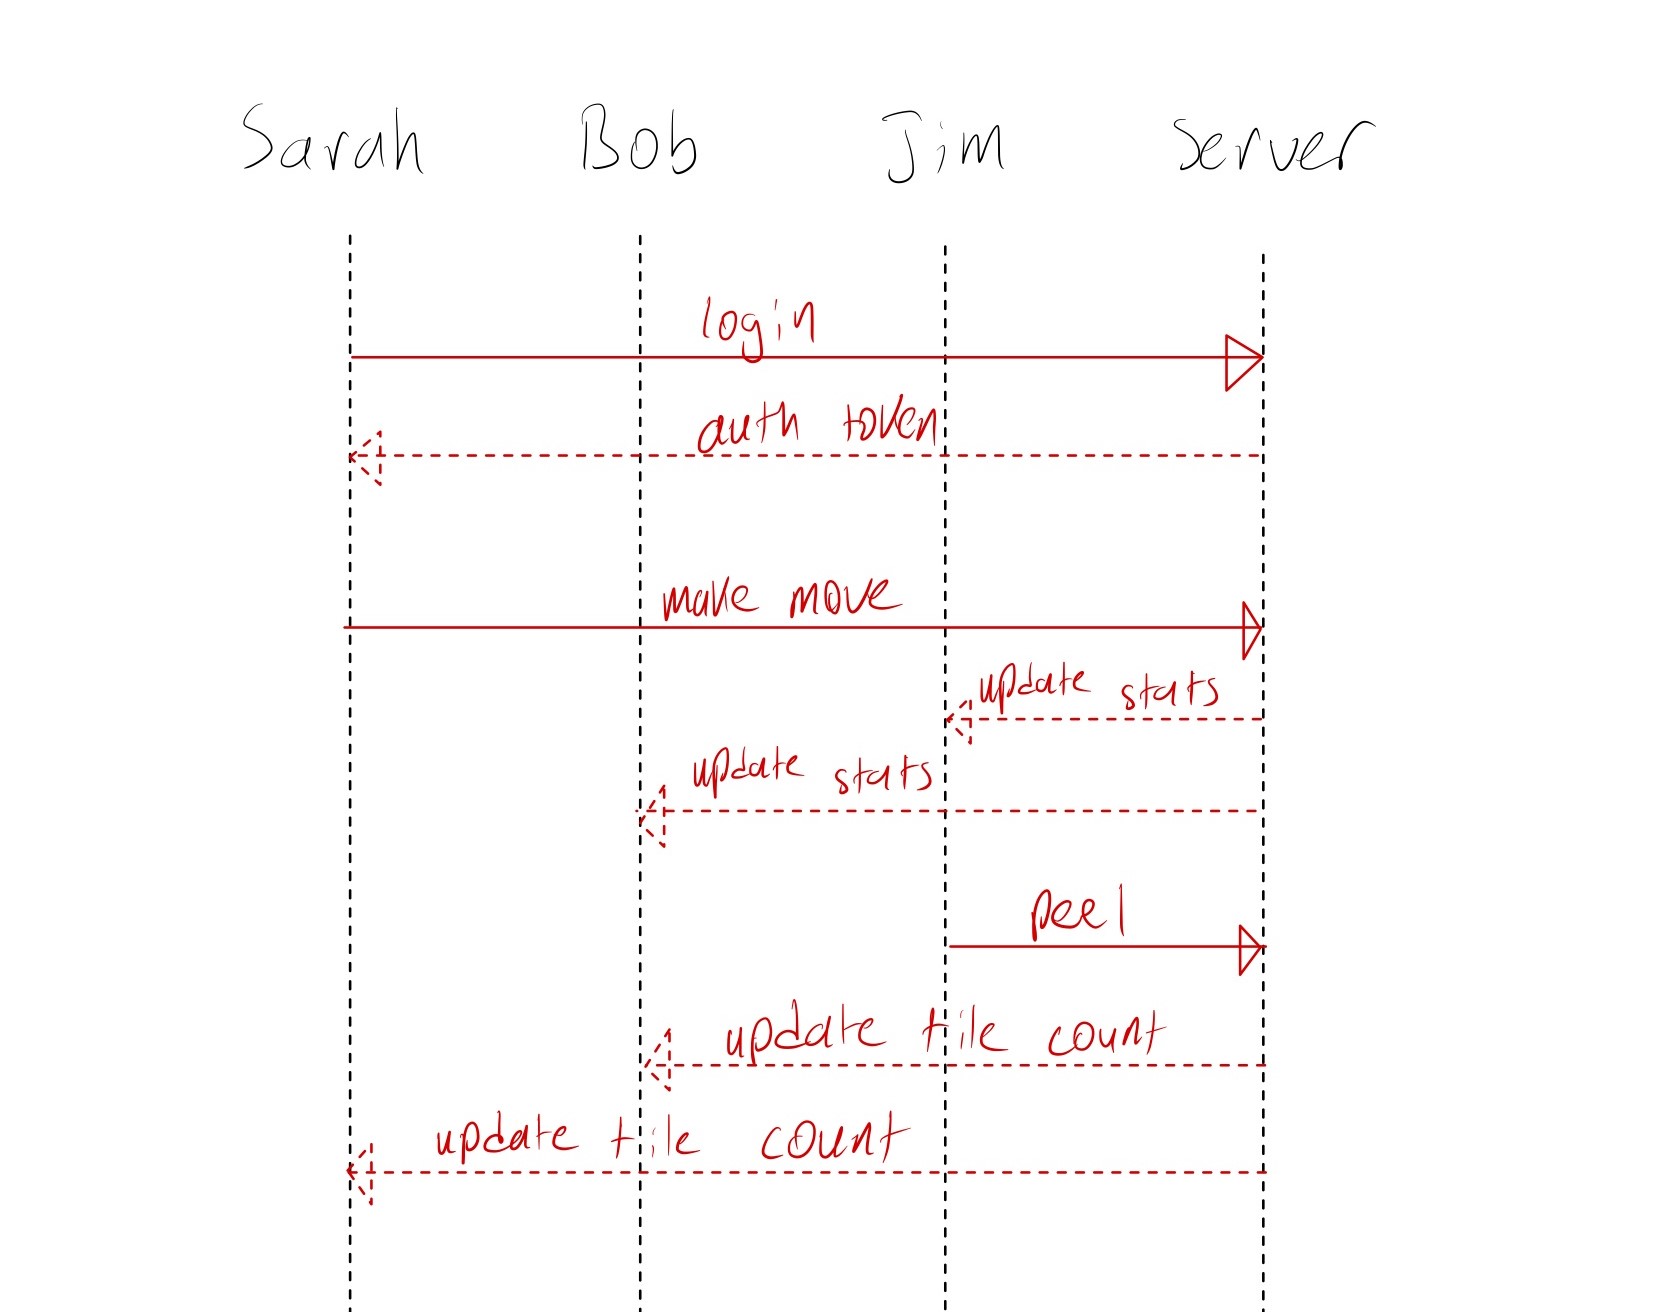 Sarah Bob Jim Server
login
auth token
make move
update stats
update stats
peel
update tile count
update tile count